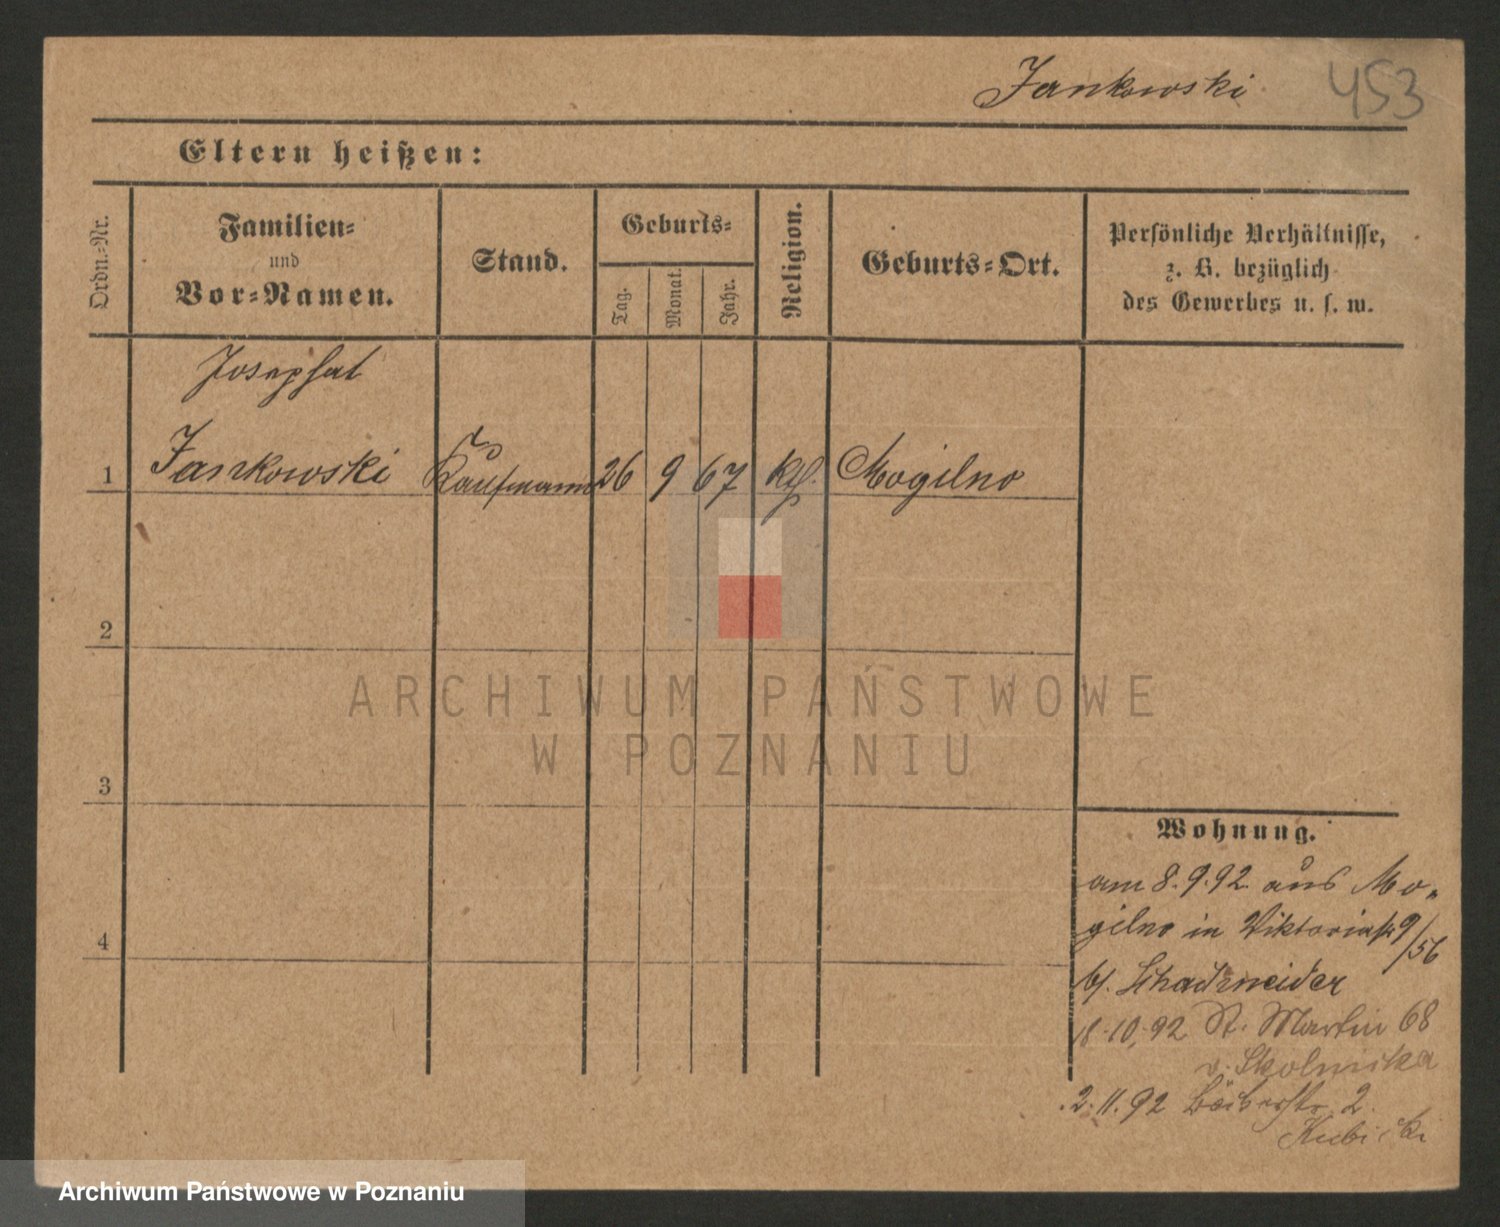 Jankowski 453
Eltern heißen:
Ordn.-Nr.
Familien-
und
Vor-Namen.
Stand.
Geburts-
Tag.
Monat.
Jahr.
Religion.
Geburts-Ort.
Persönliche Verhältnisse,
z. B. bezüglich
des Gewerbes u. s. w.
Josephat
1 Jankowski Kaufmann 26 9 67 Kth. Mogilno
2
3
4
Wohnung.
am 8.9.92 aus Mo-
gilno in Viktoriastr 9/56
b/. Schadzneider
18.10.92 St. Martin 68
v. Skolniska
2.11.92 2
Kubicki
ARCHIWUM PAŃSTWOWE
W POZNANIU
Archiwum Państwowe w Poznaniu